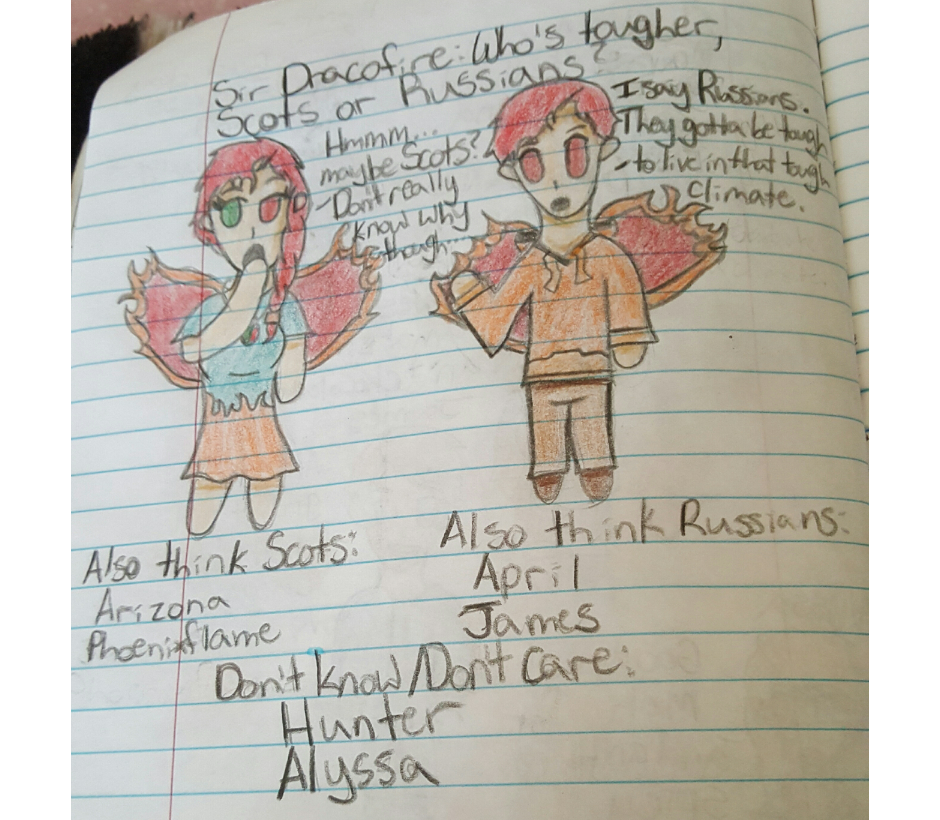 Sir Dracofire: Who's tougher,
Scots or Russians?
Hmmm...
maybe Scots?
Don't really
know why
though...
I say Russians.
They gotta be tough
to live in that tough
climate.
Also think Scots:
Arizona
Phoenixflame
Also think Russians:
April
James
Don't know/Don't care:
Hunter
Alyssa